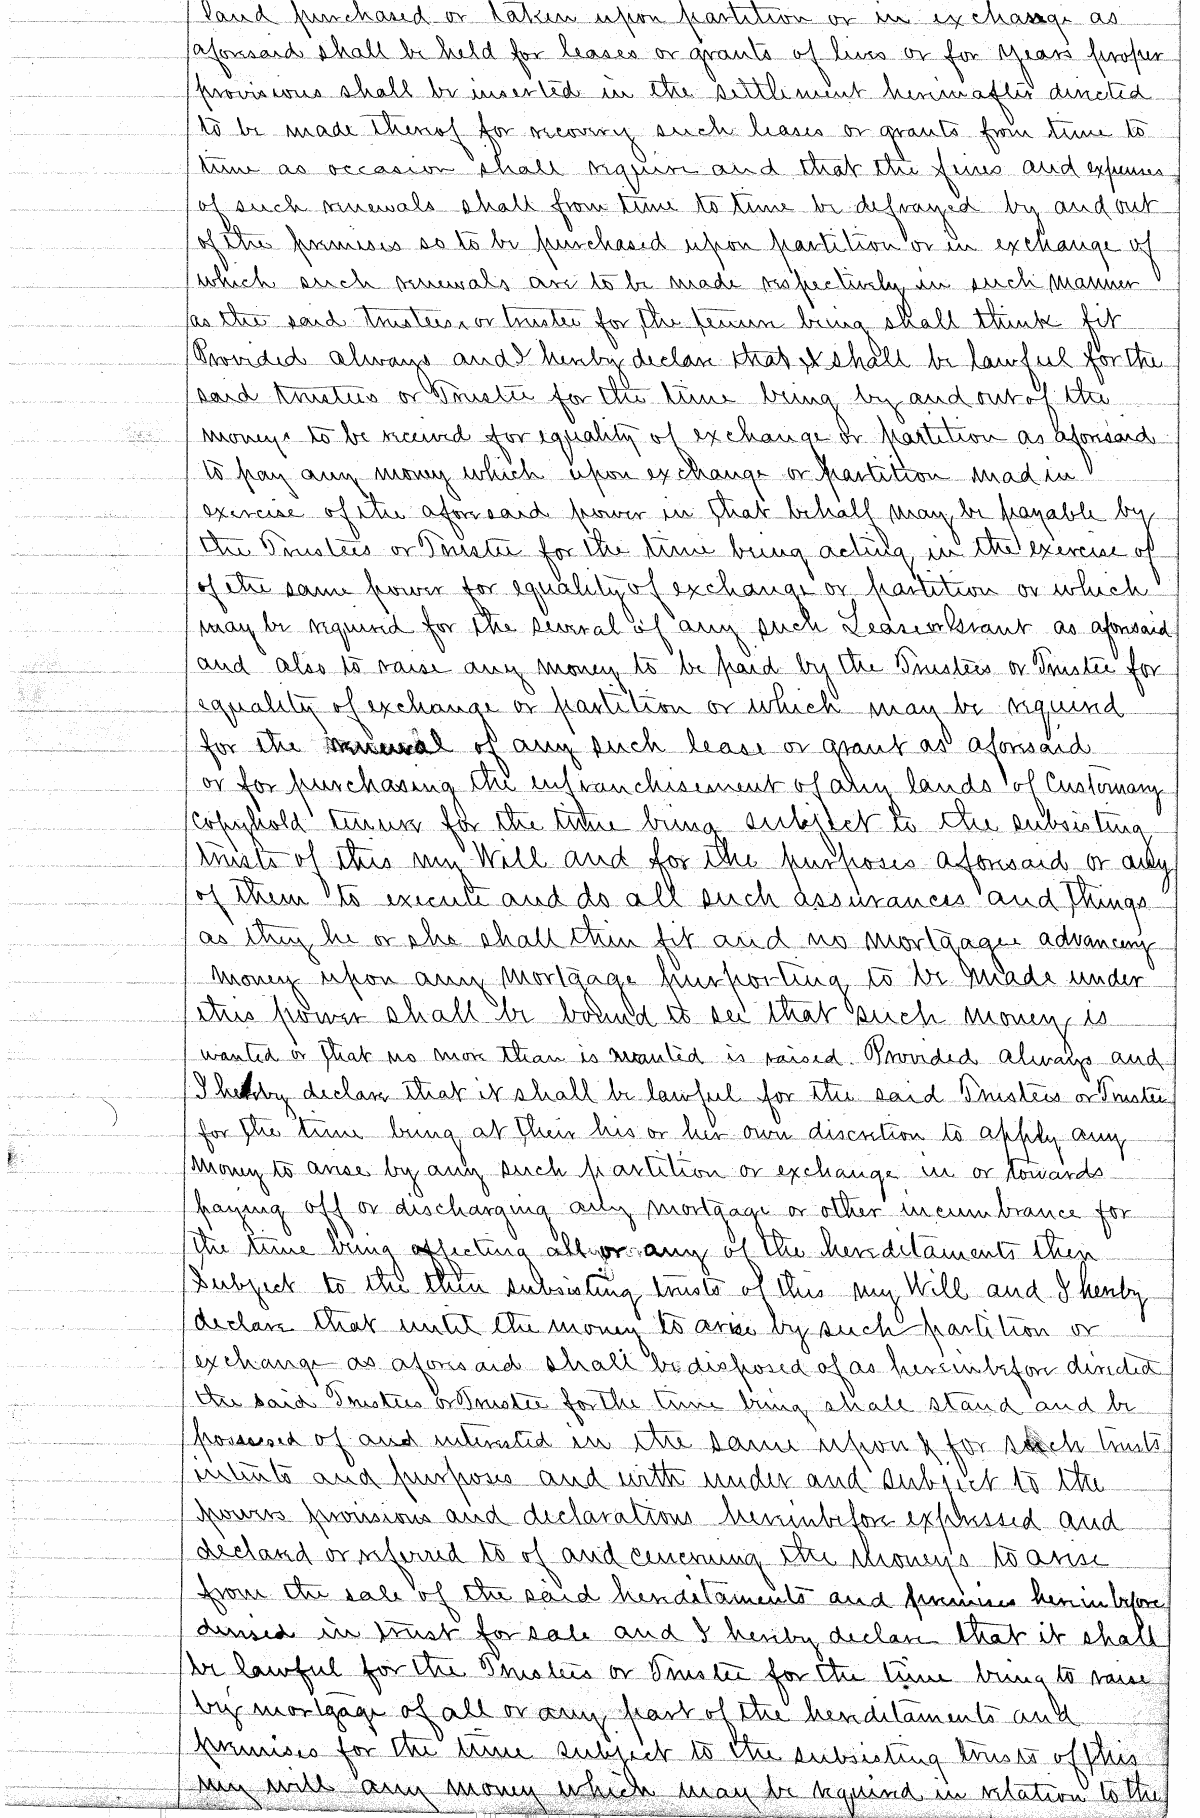 land purchased or taken upon partition or in exchange as
aforesaid shall be held for leases or grants of lives or for years proper
provisions shall be inserted in the settlement hereinafter directed
to be made thereof for recovery such leases or grants from time to
time as occasion shall require and that the fines and expenses
of such renewals shall from time to time be defrayed by and out
of the premises so to be purchased upon partition or in exchange of
which such renewals are to be made respectively in such manner
as the said trustees or trustee for the tenure being shall think fit
Provided always and I hereby declare that it shall be lawful for the
said trustees or Trustee for the time being by and out of the
moneys to be received for equality of exchange or partition as aforesaid
to pay any money which upon exchange or partition mad in
exercise of the aforesaid power in that behalf may be payable by
the Trustees or Trustee for the time being acting in the exercise of
of the same power for equality of exchange or partition or which
may be required for the several of any such Lease or Grant as aforesaid
and also to raise any money to be paid by the Trustees or Trustee for
equality of exchange or partition or which may be required
for the renewal of any such lease or grant as aforesaid
or for purchasing the enfranchisement of any lands of Customary
copyhold tenure for the time being subject to the subsisting
trusts of this my Will and for the purposes aforesaid or any
of them to execute and do all such assurances and things
as they he or she shall thin fit and no mortgagee advancing
money upon any mortgage purporting to be made under
this power shall be bound to see that such money is
wanted or that no more than is wanted is raised. Provided always and
I hereby declare that it shall be lawful for the said Trustees or Trustee
for the time being at their his or her own discretion to apply any
money to arise by any such partition or exchange in or towards
paying off or discharging any mortgage or other incumbrance for
the time being affecting all or any of the hereditaments then
subject to the then subsisting trusts of this my Will and I hereby
declare that until the money to arise by such partition or
exchange as aforesaid shall be disposed of as hereinbefore directed
the said Trustees or Trustee for the time being shall stand and be
possessed of and interested in the same upon & for such trusts
intents and purposes and with under and subject to the
powers provisions and declarations hereinbefore expressed and
declared or referred to of and concerning the moneys to arise
from the sale of the said hereditaments and premises hereinbefore
devised in trust for sale and I hereby declare that it shall
be lawful for the Trustees or Trustee for the time being to raise
by mortgage of all or any part of the hereditaments and
premises for the time subject to the subsisting trusts of this
my will any money which may be required in relation to the